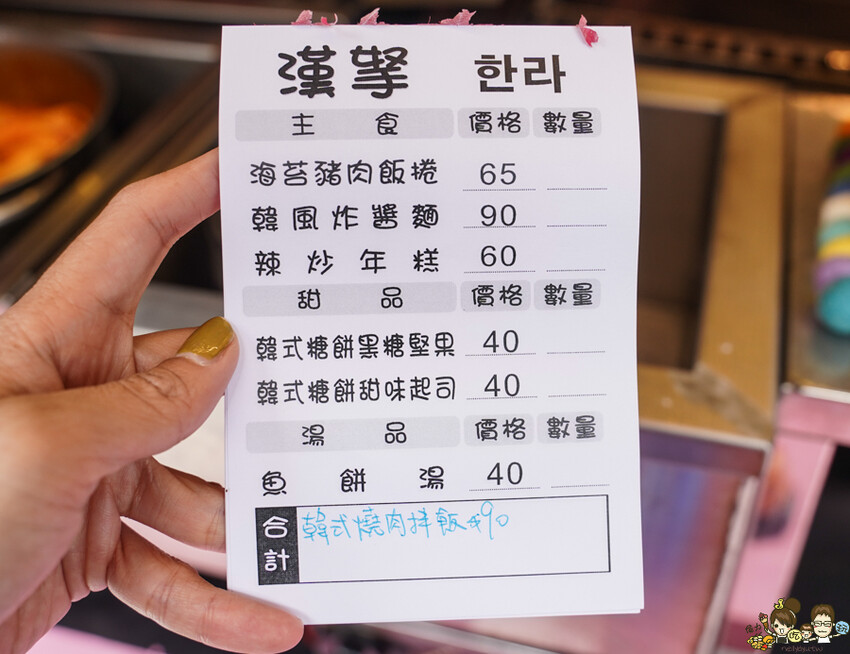 漢拏 한라
主食 價格 數量
海苔豬肉飯捲 65
韓風炸醬麵 90
辣炒年糕 60
甜品 價格 數量
韓式糖餅黑糖堅果 40
韓式糖餅甜味起司 40
湯品 價格 數量
魚餅湯 40
合計 韓式燒肉拌飯$90